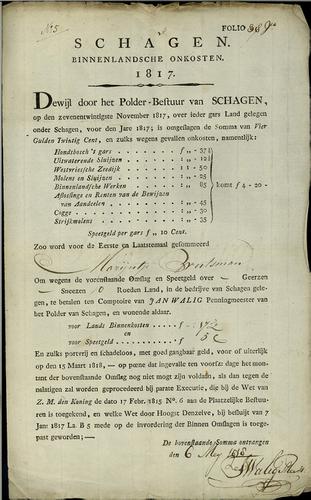 N.o 5
FOLIO
SCHAGEN.
BINNENLANDSCHE ONKOSTEN.
1817.
Dewijl door het Polder-Bestuur van SCHAGEN,
op den zevenentwintigste November 1817, over ieder gars Land gelegen
onder Schagen, voor den Jare 1817; is omgeslagen de Somma van Vier
Gulden Twintig Cent, en zulks wegens gevallen onkosten, namentlijk:
Hondtsbosch's gars ƒ „- 37½
Uitwaterende Sluijzen ƒ „- 12½
Westvriesche Zeedijk ƒ 1„- 50
Molens en Sluijzen ƒ „- 25
Binnenlandsche Werken ƒ „- 85
komt ƒ 4-20-
Aflossinge en Renten van de Bewijzen
van Aandeelen ƒ „- 45
Cogge ƒ „- 30
Strijkmolens ƒ „- 35
Speetgeld per gars ƒ „ 10 Cent.
Zoo word voor de Eerste en Laatstemaal gesommeerd
Om wegens de vorenstaande Omslag en Speetgeld over - Geerzen
- Sneezen 10 Roeden Land, in de bedrijve van Schagen gele-
gen, te betalen ten Comptoire van JAN WALIG Penningmeester van
het Polder van Schagen, en wonende aldaar.
voor Lands Binnenkosten
en
voor Speetgeld
En zulks porterij en schadeloos, met goed gangbaar geld, voor of uiterlijk
op den 15 Maart 1818, — op poene dat ingevalle ten voorsz: dage het mon-
tant der bovenstaande Omslag nog niet mogt zijn voldaan, als dan tegen de
nalatigen zal worden geprocedeerd bij parate Executie, die bij de Wet van
Z. M. den Koning de dato 17 Febr. 1815 N°. 6 aan de Plaatselijke Bestuu-
ren is toegekend, en welke Wet door Hoogst Denzelve, bij besluijt van 7
Janij 1817 La. B 5 mede op de invordering der Binnen Omslagen is toege-
past geworden; —
De bovenstaande Somma ontvangen
den 6 Mey 1818